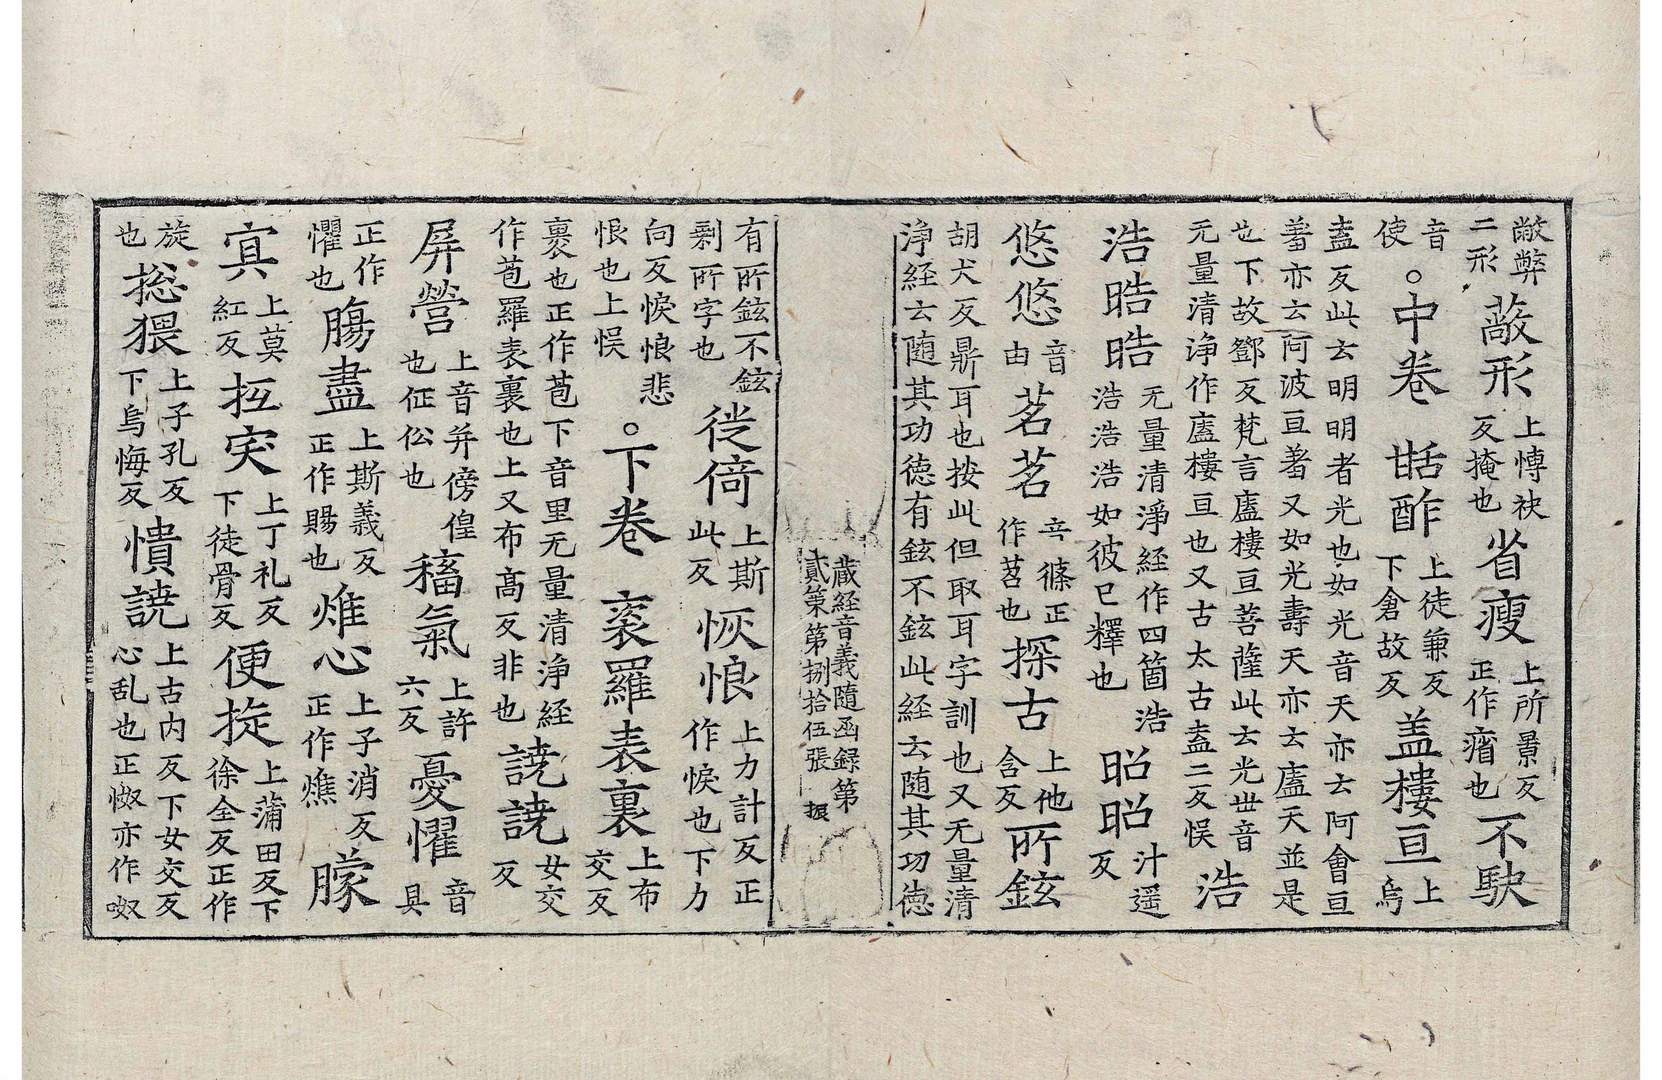 敝弊二形蔽形上愽袂反掩也省瘦上所景反正作㾪也不駛
音使。中卷甛酢上徒兼反下倉故反盖樓亘上烏
盍反此云明明者光也如光音天亦云阿會亘
䓤亦云阿波亘䓤又如光壽天亦云廬天並是
也下故鄧反梵言廬樓亘菩薩此云光世音
无量清浄作廬樓亘也又古太古盍二反悮浩
浩晧晧无量清淨經作四箇浩浩浩浩如彼已釋也昭昭汁遥反
悠悠音由茗茗音條正作苕也探古上他含反所鉉
胡犬反鼎耳也按此但取耳字訓也又无量清
浄経云随其功德有鉉不鉉此経云随其功德
藏経音義隨函録第
貳第第捌拾伍張 振
有所鉉不鉉剩所字也從倚上斯此反恢悢上力計反正作悷也下力
向反悷悢悲恨也上悮。下卷裹羅表裏上布交反
裹也正作苞下音里无量清淨経作苞羅表裏也上又布高反非也譊譊女交反
屏營上音并傍偟也怔伀也稸氣上許六反憂懼音具
正作懼也腸盡上斯義反正作賜也燋心上子消反正作燋朦
㝠上莫紅反抵突上丁礼反下徒骨反便旋上蒲田反下徐全反正作
旋也揔猥上子孔反下烏悔反憒譊上古内反下女交反心乱也正怓亦作呶